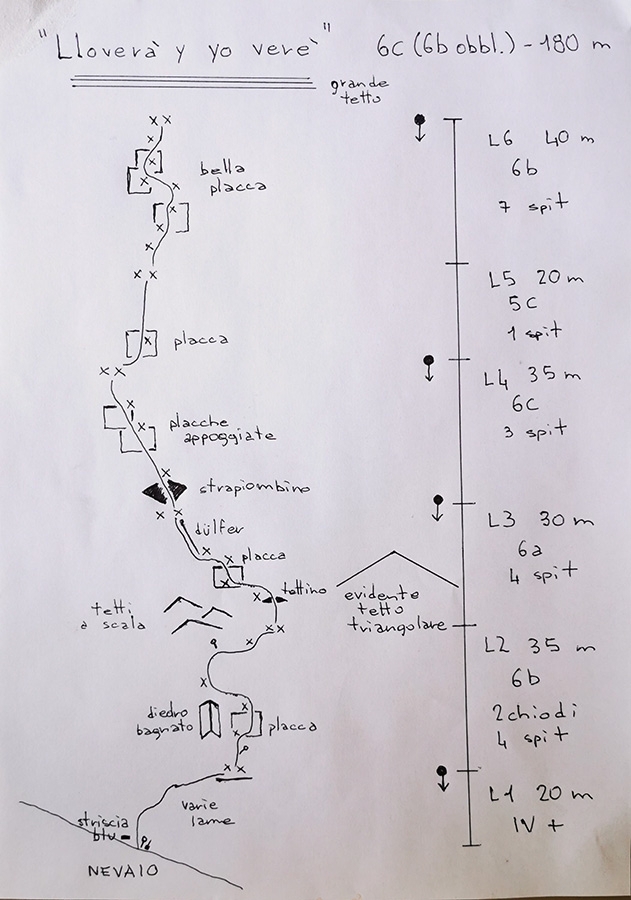 "Lloverà y yo verè" 6c (6b obbl.) - 180 m
grande
tetto
L6 40 m
6b
7 spit
bella
placca
L5 20 m
5c
1 spit
placca
L4 35 m
6c
3 spit
placche
appoggiate
strapiombino
dülfer
L3 30 m
6a
4 spit
placca
tettino
evidente
tetto
triangolare
tetti
a scala
L2 35 m
6b
2 chiodi
4 spit
diedro
bagnato
placca
L1 20 m
IV +
varie
lame
striscia
blu
NEVAIO